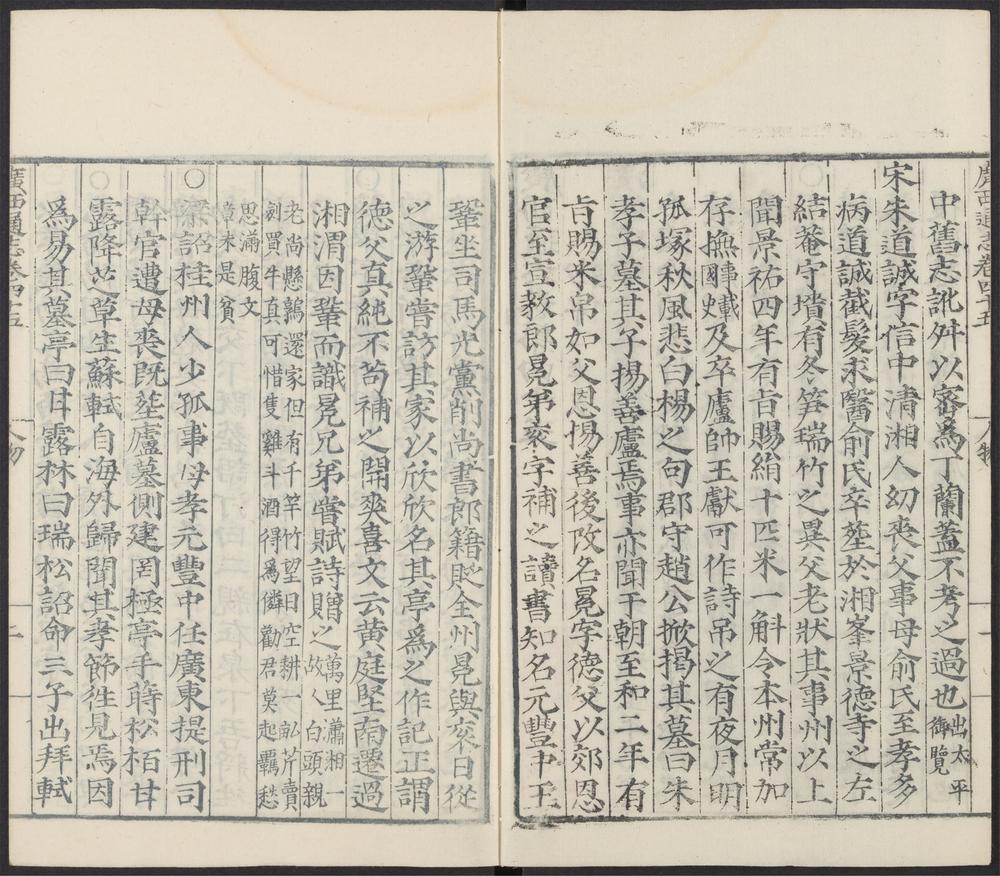 廣西通志卷四十五
人物
一
中舊志訛舛以審為丁蘭蓋不考之過也出太平御覽
宋朱道誠字信中清湘人幼喪父事母俞氏至孝多
病道誠截髮求醫俞氏卒塟於湘峯景德寺之左
結菴守墳有冬筍瑞竹之異父老狀其事州以上
聞景祐四年有旨賜絹十匹米一斛令本州常加
存撫事載國史及卒廬帥王獻可作詩吊之有夜月明
孤塚秋風悲白楊之句郡守趙公掀揭其墓曰朱
孝子墓其子揚善廬焉事亦聞于朝至和二年有
旨賜米帛如父恩揚善後改名冕字德父以郊恩
官至宣教郎冕弟袞字補之讀書知名元豐中王
鞏坐司馬光黨削尚書郎籍貶全州冕與袞日從
之游鞏嘗訪其家以欣欣名其亭為之作記正謂
德父真純不苟補之開爽喜文云黃庭堅南遷過
湘渭因鞏而識冕兄弟嘗賦詩贈之萬里瀟湘一故人白頭親
老尚懸鶉還家但有千竿竹望日空耕一畝芹賣
劍買牛真可惜隻雞斗酒得為憐勸君莫起羈愁
思滿腹文章未是貧
○梁詔桂州人少孤事母孝元豐中任廣東提刑司
幹官遭母喪既塟廬墓側建罔極亭手蒔松栢甘
露降芝草生蘇軾自海外歸聞其孝節徃見焉因
為易其墓亭曰甘露林曰瑞松詔命三子出拜軾
廣西通志卷四十五
人物
二